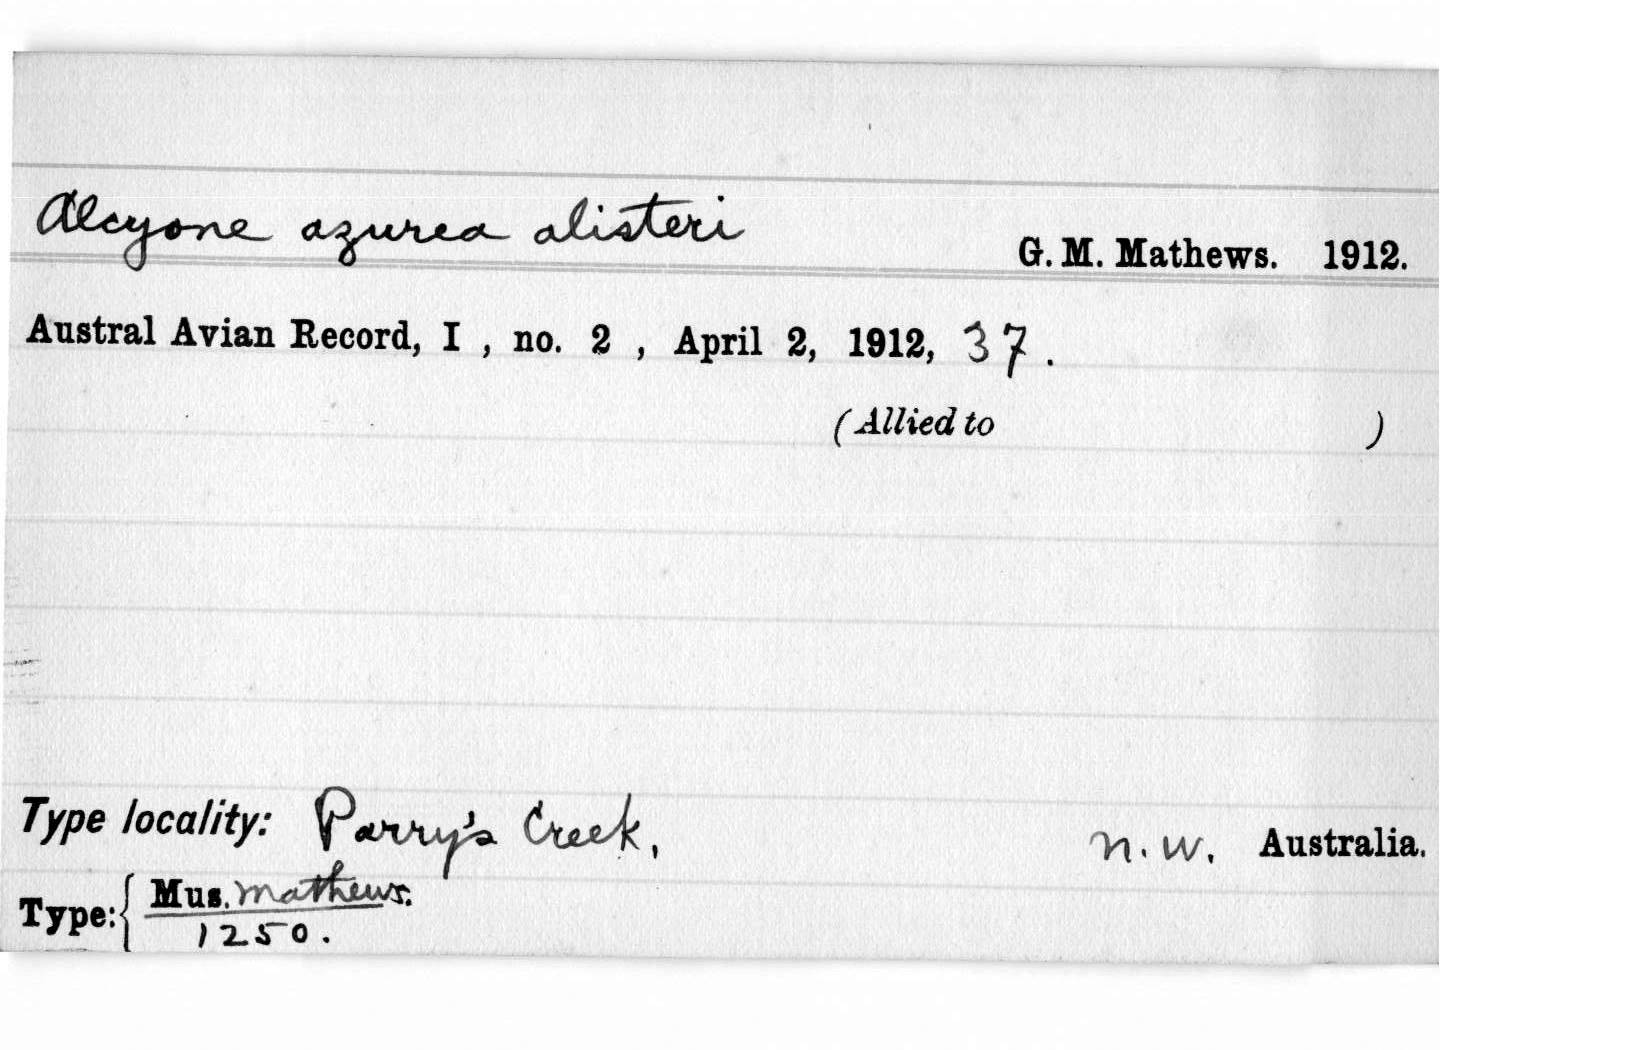 Alcyone azurea alisteri
G. M. Mathews. 1912.
Austral Avian Record, I , no. 2 , April 2, 1912, 37.
(Allied to )
Type locality: Parry's Creek, N.W. Australia.
Type: { Mus. Mathews.
1250.